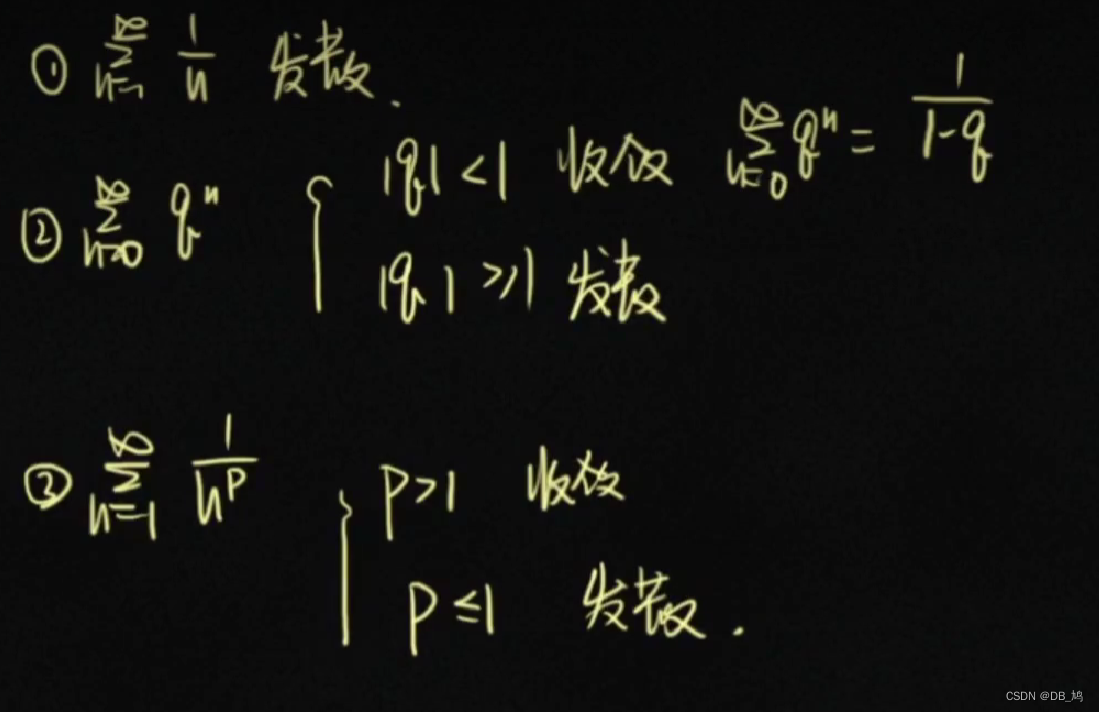 ① ∑_{n=1}^{∞} 1/n 发散.
② ∑_{n=0}^{∞} q^n { |q|<1 收敛 ∑_{n=0}^{∞} q^n = 1/(1-q)
|q|≥1 发散
③ ∑_{n=1}^{∞} 1/n^p { p>1 收敛
p≤1 发散.
CSDN @DB_鸠